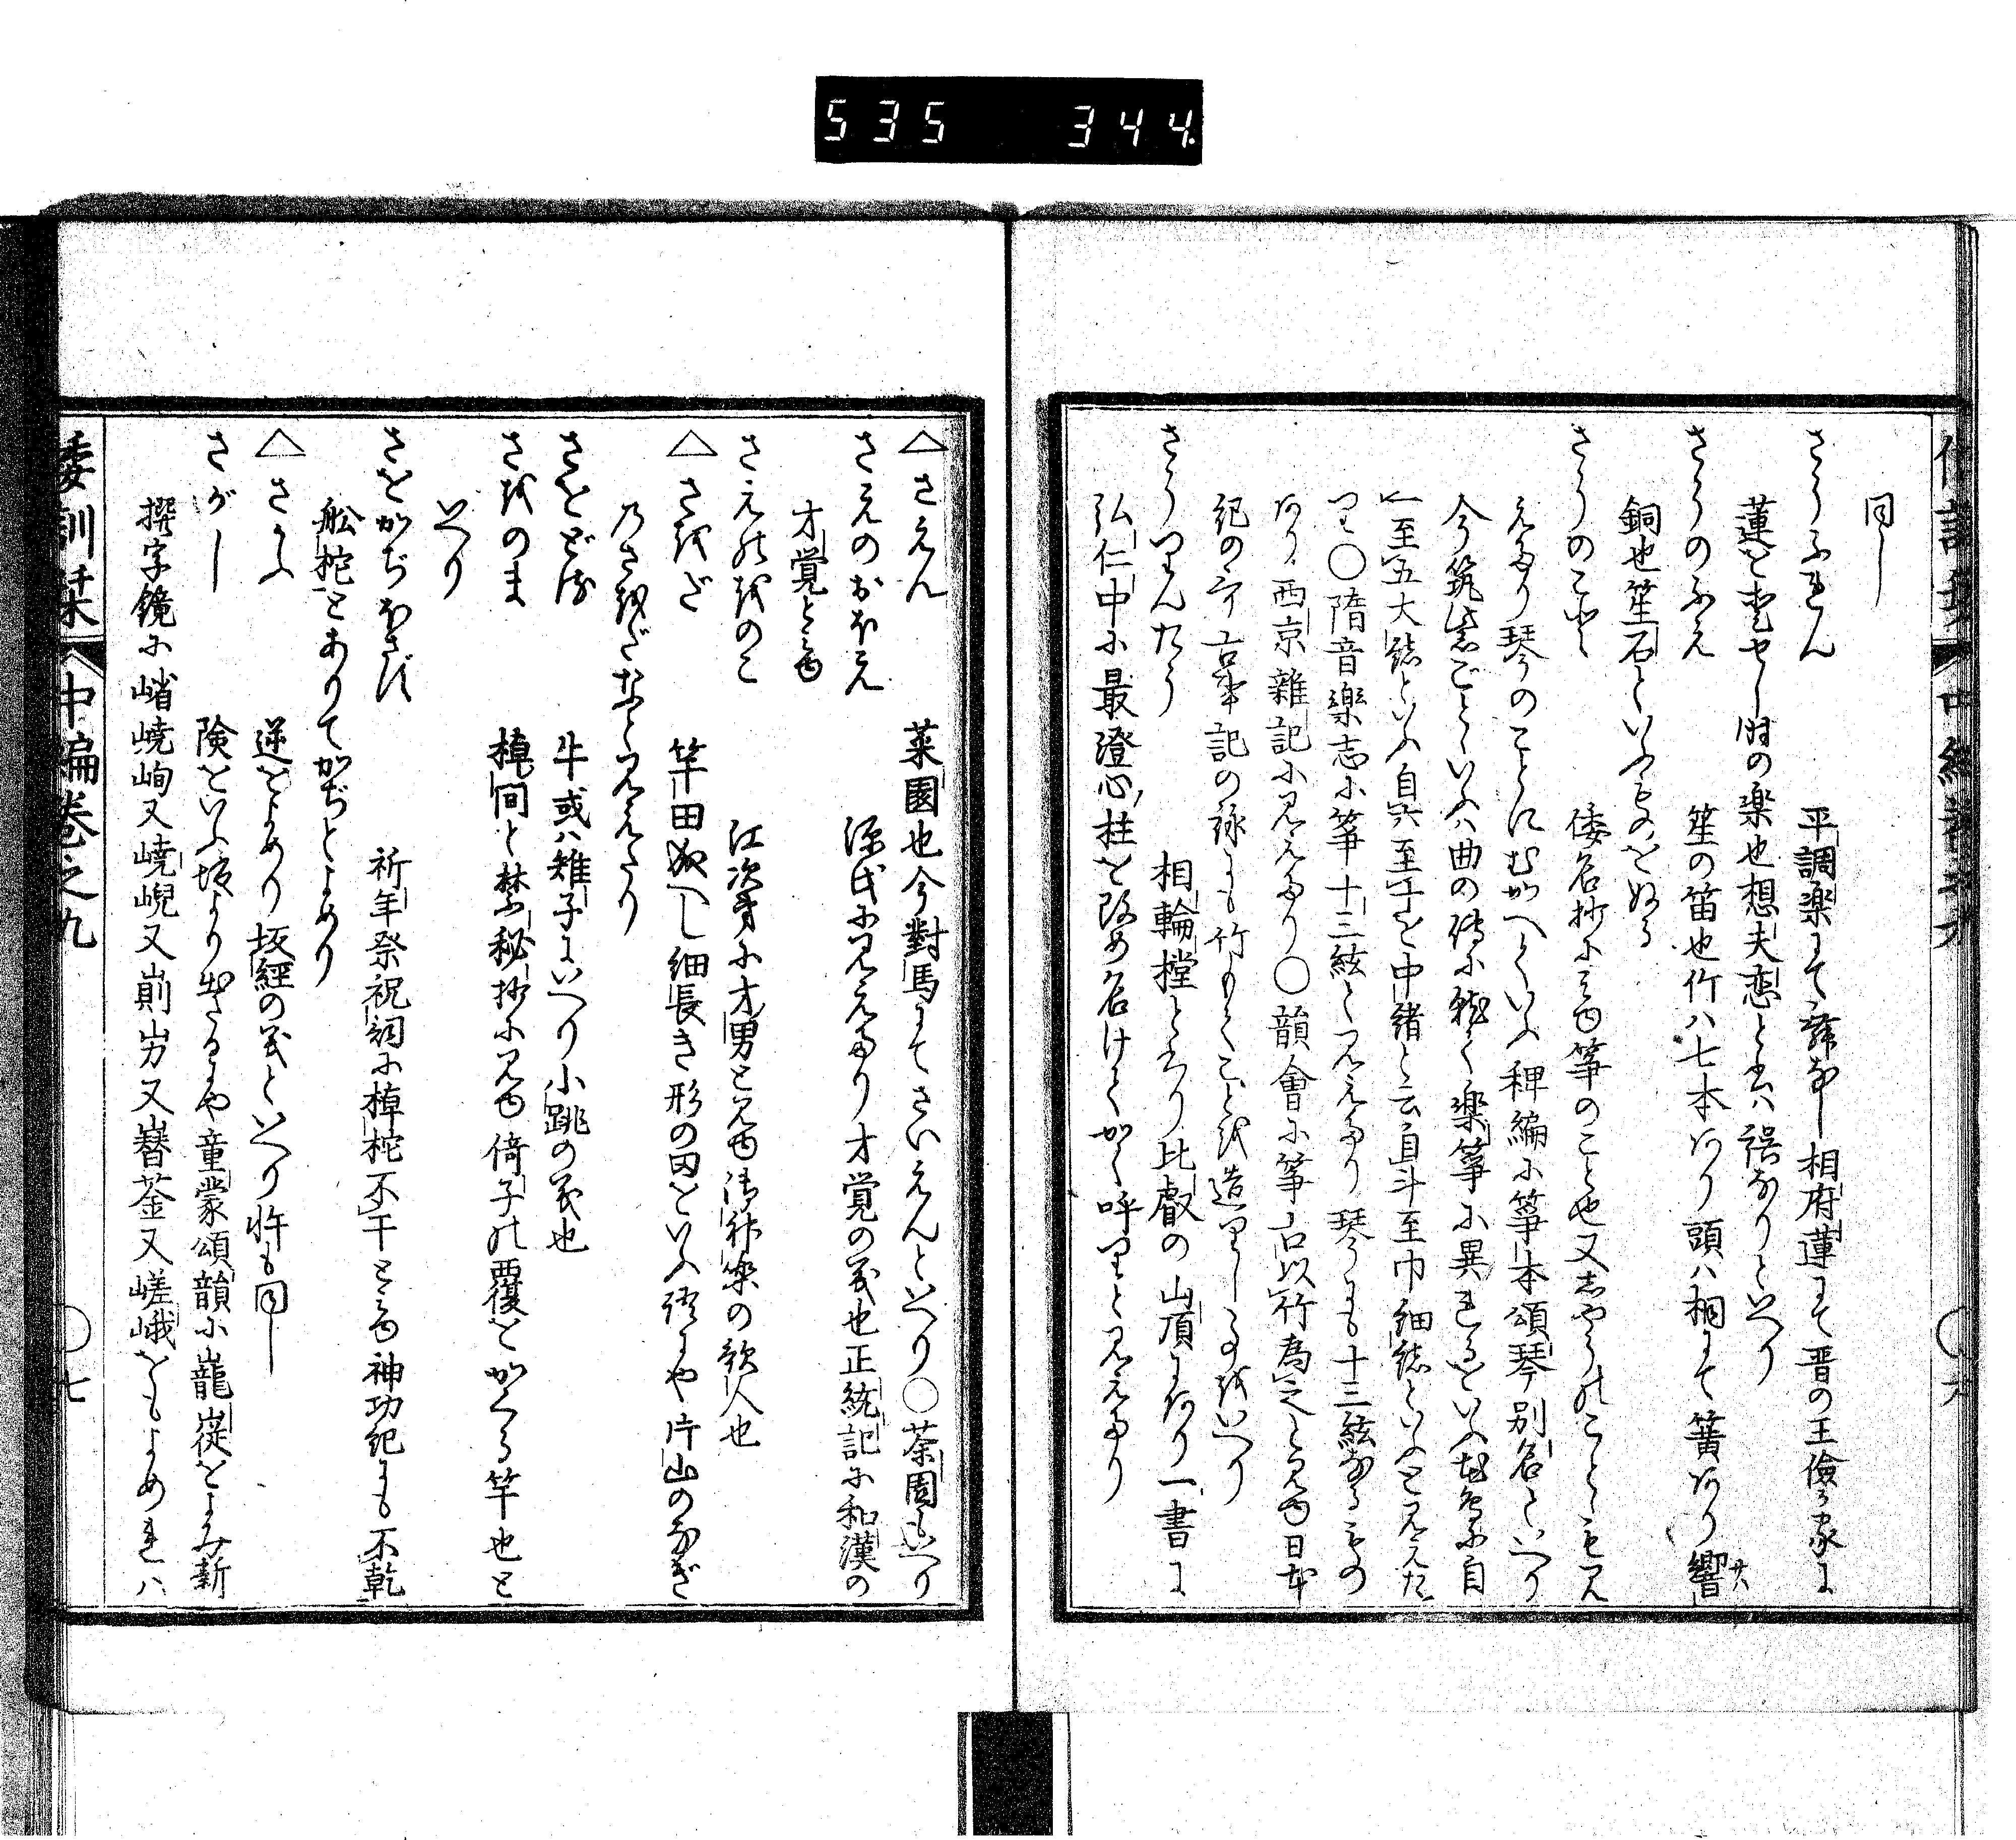 535 344.
同し
さうふれん 平調楽にて舞なし相府蓮にて晋の王倹か家に
蓮をせし時の楽也想夫恋と云ハ誤なりといへり
さうのふえ 笙の笛也竹ハ七本あり頭ハ桐にて簧あり響
銅也笙石といふものをぬる
さうのこと 倭名抄にみゆ箏のこと也又しやうのことゝも見
えたり琴のことにむかへていふ稗編に箏本頌琴別名といへり
今筑紫ごとゝいふハ曲の楽箏に異れるをいふ自
一至五大絃といふ自六至十を中緒と云自斗至巾細絃といふと見えた
り○隋音楽志に箏十三絃と見えたり琴にも十三絃なるもの
あり西京雑記に見えたり○韻會に箏古以竹為之と見ゆ日本
紀の哥古事記の詠にも竹もてことを造りし事をいへり
さうりんたう 相輪橖と云り比叡の山頂にあり一書に
弘仁中に最澄心柱を改め名けてかく呼りと見えたり
△さえん 菜園也今對馬にてさいえんといへり○茶園もいへり
さえのおぼえ 源氏に見えたり才覚の義也正統記に和漢の
才覚とみゆ
さえのをのこ 江次第に才男と見ゆ御神楽の歌人也
△さをだ 竿田成へし細長き形の田をいふ語にや片山のなぎ
乃さをだなど見えたり
さをどる 牛或ハ雉子にいへり小跳の義也
さをのま 棹間と禁秘抄に見ゆ倚子の覆をかくる竿也と
いへり
さをかぢほさず 祈年祭祝詞に棹柁不干とみゆ神功紀にも不乾
舩柁とありてかぢとよめり
△さかふ 逆をよめり坂經の義といへり忤も同し
さがし 険をいふ坂より出たるにや童蒙頌韻に巃嵸をよみ新
撰字鏡に峭嶢峋又嶢崐又崱屴又嶜崟又嵯峨をもよめれハ
倭訓栞 中編巻之九 ○七